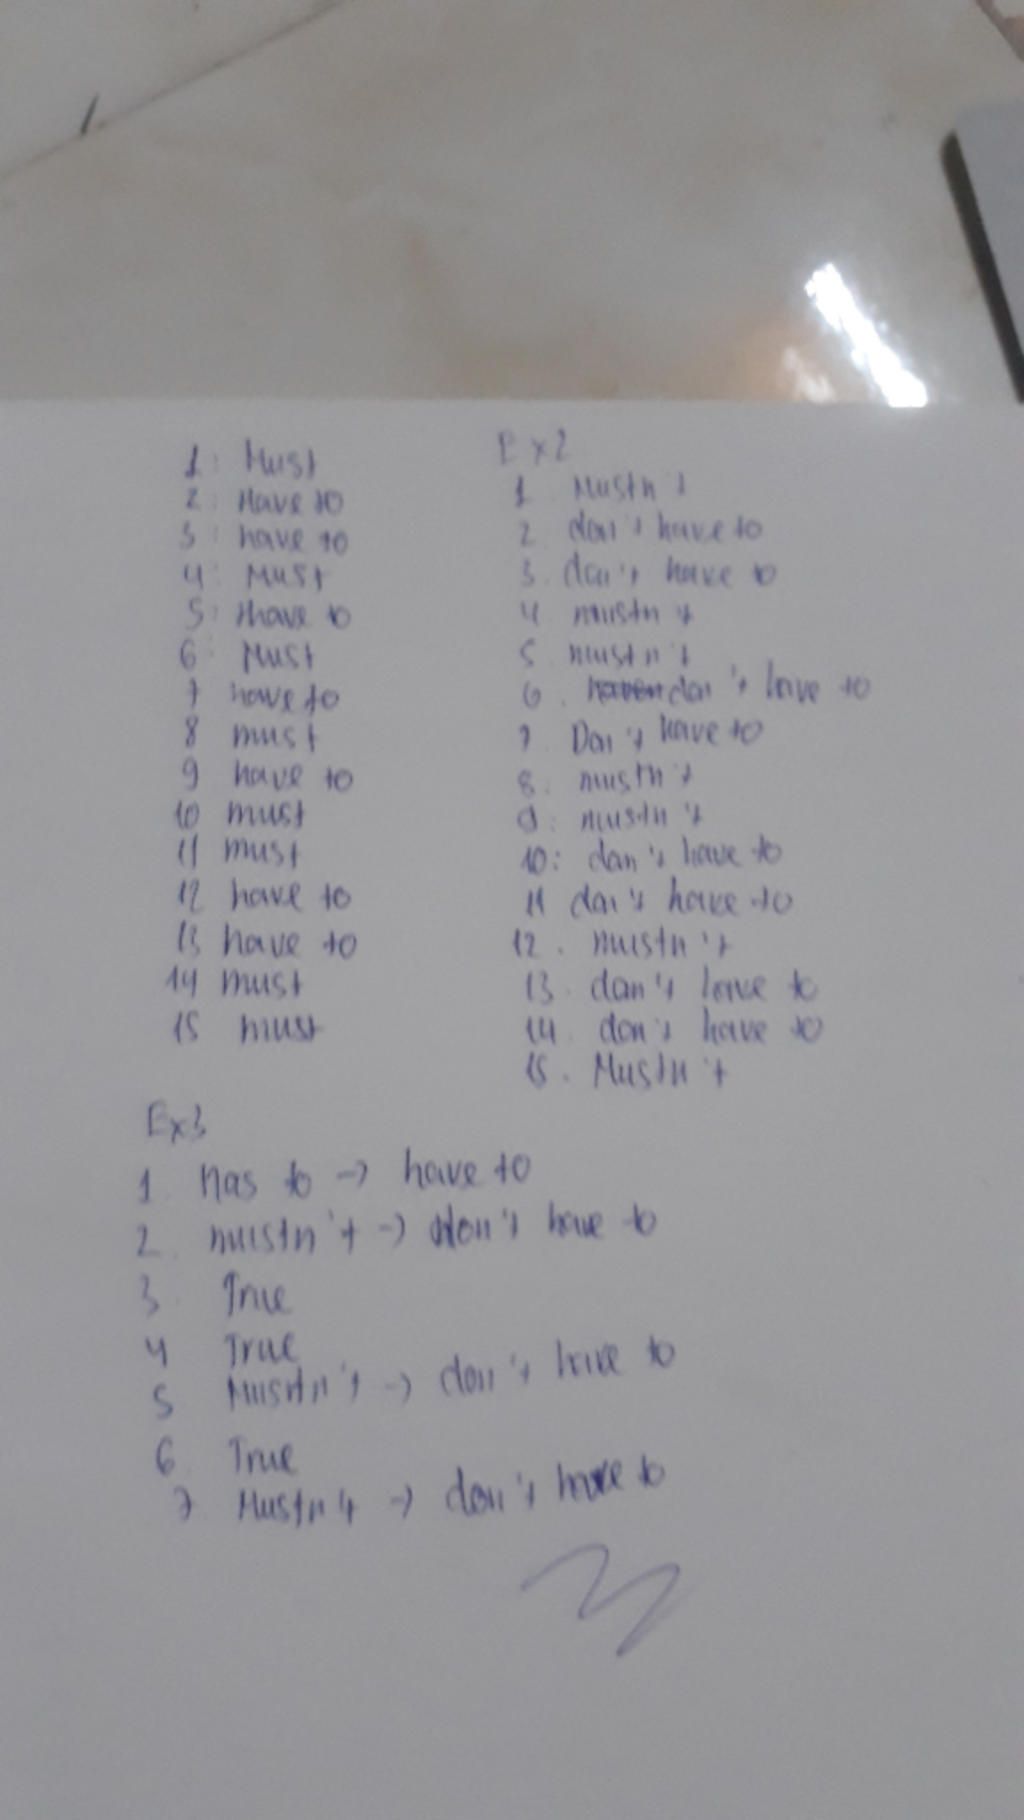 1: Must
2: Have to
3: have to
4: Must
5: Have to
6: Must
7 have to
8 must
9 have to
10 must
11 must
12 have to
13 have to
14 must
15 must
Ex2
1. Mustn't
2. don't have to
3. don't have to
4 mustn't
5. mustn't
6. don't have to
7. Don't have to
8. mustn't
9: mustn't
10: don't have to
11 don't have to
12. mustn't
13. don't have to
14. don't have to
15. Mustn't
Ex3
1. has to -> have to
2. mustn't -> don't have to
3. True
4 True
5 Mustn't -> don't have to
6. True
7 Mustn't -> don't have to